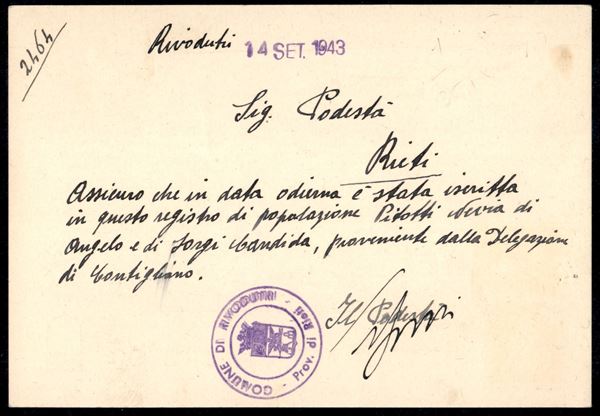 2464
Rivodutri 14 SET. 1943
Sig. Podestà
Rieti
Assicuro che in data odierna è stata iscritta
in questo registro di popolazione Pitotti Nevia di
Angelo e di Sorgi Candida, proveniente dalla Delegazione
di Contigliano.
Il Podestà
COMUNE DI RIVODUTRI - Prov. di Rieti -